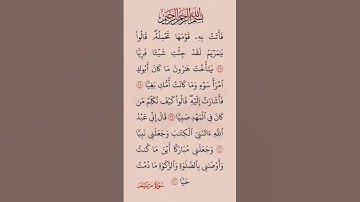 بِسْمِ اللَّهِ الرَّحْمَٰنِ الرَّحِيمِ
فَأَتَتْ بِهِۦ قَوْمَهَا تَحْمِلُهُۥ ۖ قَالُوا۟
يَٰمَرْيَمُ لَقَدْ جِئْتِ شَيْـًٔا فَرِيًّا
۝٢٧ يَٰٓأُخْتَ هَٰرُونَ مَا كَانَ أَبُوكِ
ٱمْرَأَ سَوْءٍ وَمَا كَانَتْ أُمُّكِ بَغِيًّا ۝٢٨
فَأَشَارَتْ إِلَيْهِ ۖ قَالُوا۟ كَيْفَ نُكَلِّمُ مَن
كَانَ فِى ٱلْمَهْدِ صَبِيًّا ۝٢٩ قَالَ إِنِّى عَبْدُ
ٱللَّهِ ءَاتَىٰنِىَ ٱلْكِتَٰبَ وَجَعَلَنِى نَبِيًّا
۝٣٠ وَجَعَلَنِى مُبَارَكًا أَيْنَ مَا كُنتُ
وَأَوْصَٰنِى بِٱلصَّلَوٰةِ وَٱلزَّكَوٰةِ مَا دُمْتُ
حَيًّا ۝٣١
سُورَةُ مَرْيَم